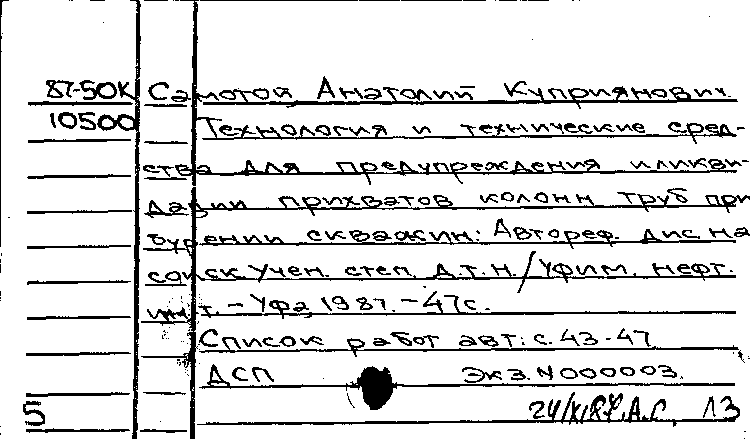 87-50К Самотой Анатолий Куприянович.
10500 Технология и технические сред-
ства для предупреждения и ликви-
дации прихватов колонн труб при
бурении скважин: Автореф. дис. на
соиск. учен. степ. д.т.н. / Уфим. нефт.
ин-т. – Уфа, 1987. – 47с.
Список работ авт: с. 43-47
ДСП Экз. N 000003.
24/XI 87. А.С.